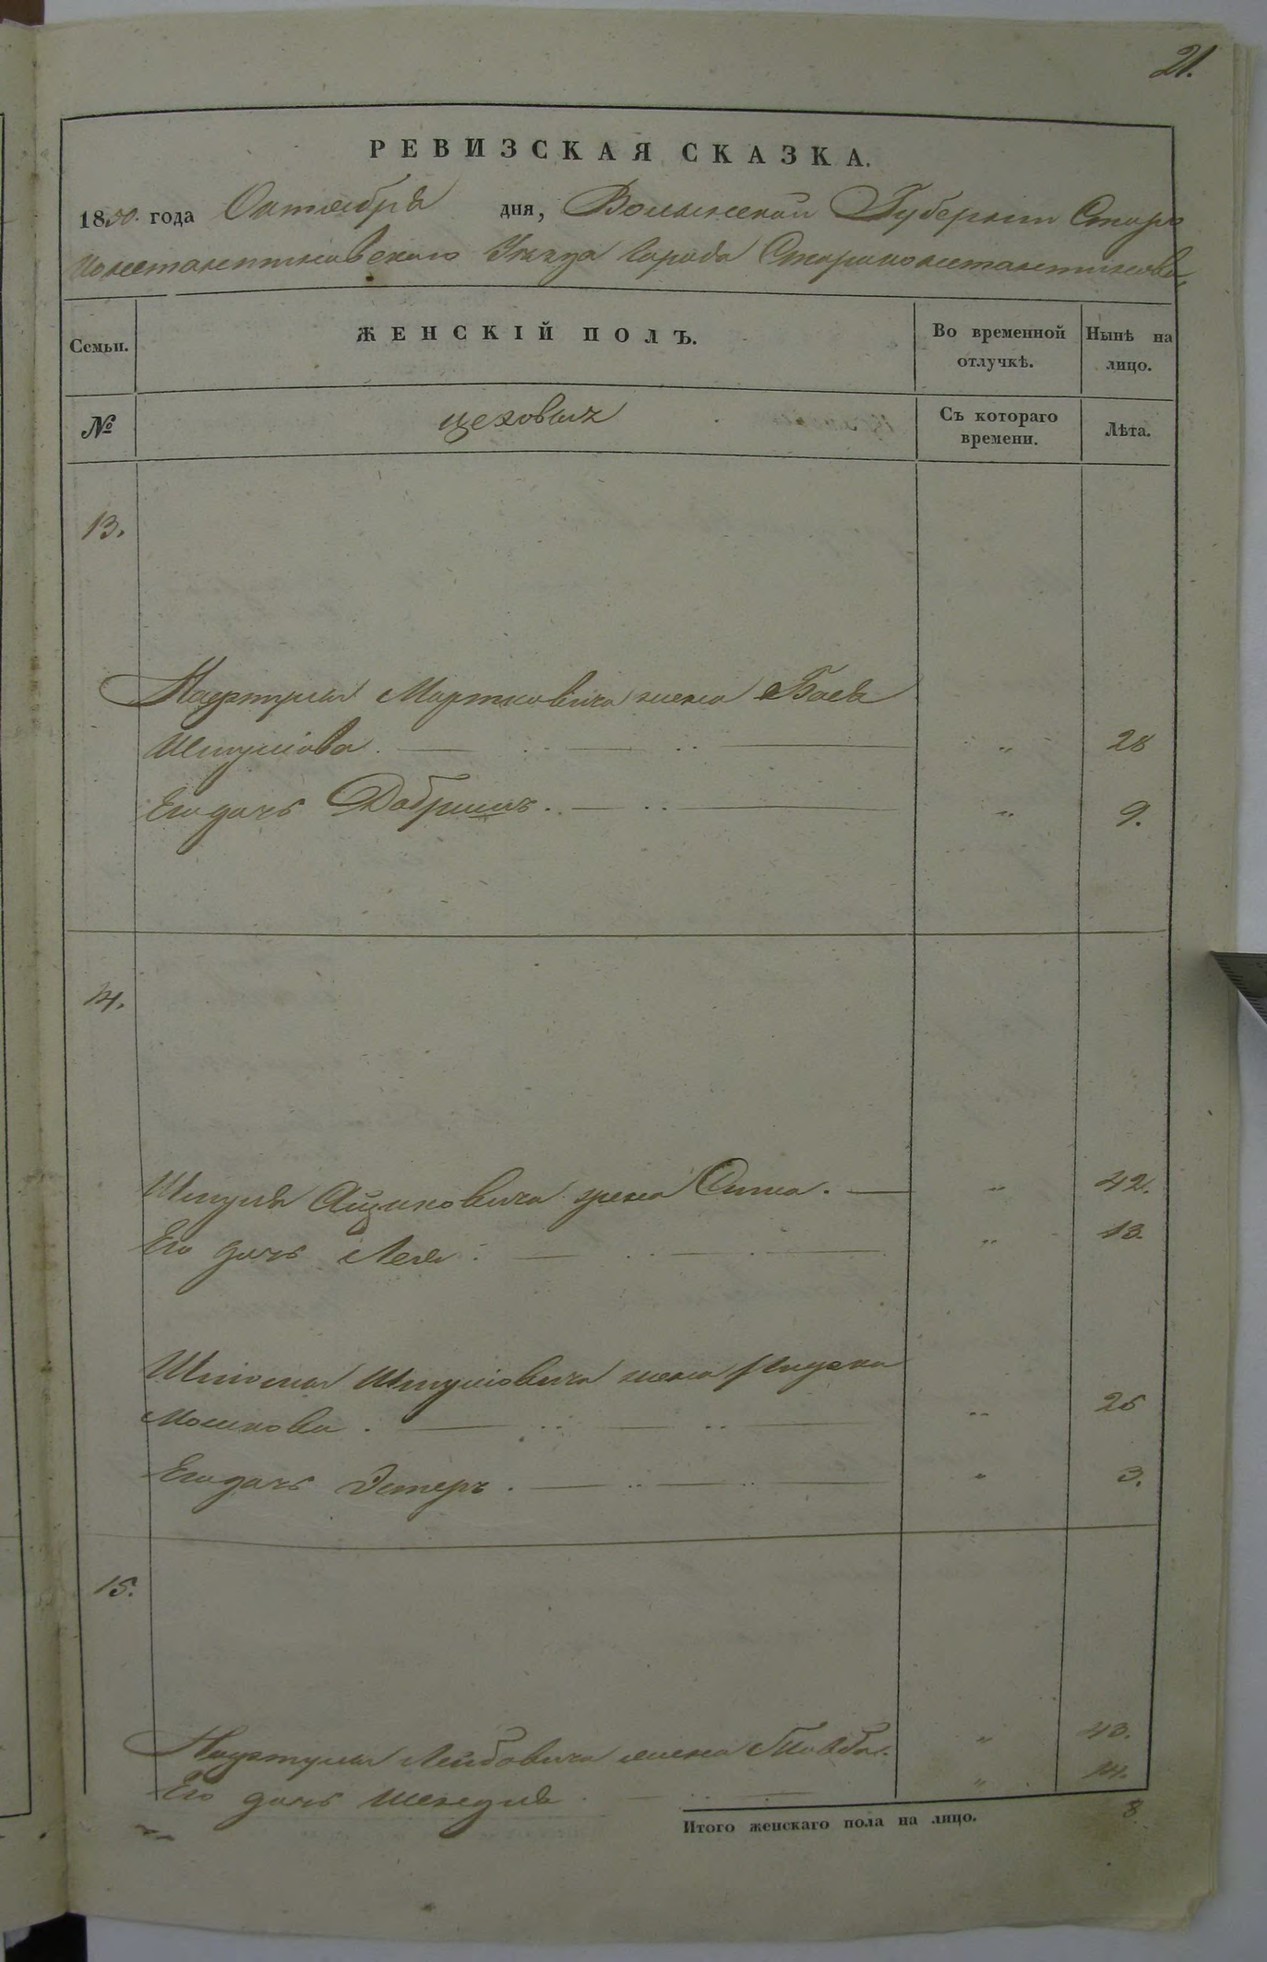 21.
РЕВИЗСКАЯ СКАЗКА.
1850 года Октября дня, Волынской Губернии Старо
константиновского Уезда Города Староконстантинова
Семьи. ЖЕНСКІЙ ПОЛЪ. Во временной отлучкѣ. Нынѣ на лицо.
№ цеховыхъ Съ котораго времени. Лѣта.
13.
Мартковича жена Бася
Шмулiова. „ 28
Его дочь Добришъ. „ 9.
14.
Шмуля Айзиковича жена Сима. „ 42.
Его дочь Лея. „ 13.
Шлiомы Шмулiовича жена
Мошкова. „ 25
Его дочь Эстеръ. „ 3.
15.
Лейбовича жена Тойба. „ 43.
Его дочь Шендля „ 14.
Итого женскаго пола на лицо. 8